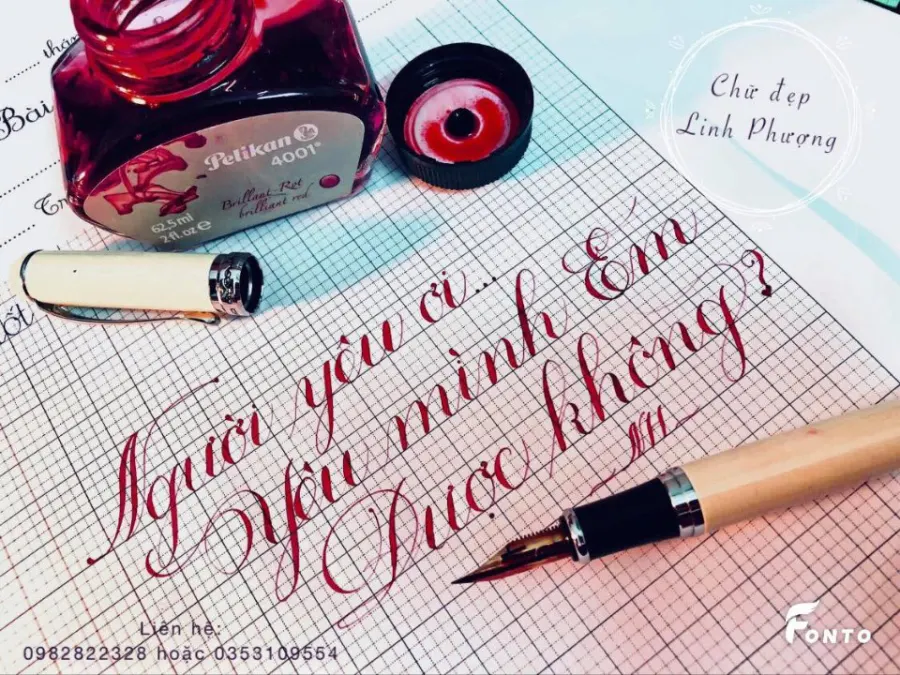 Bài
Pelikan
4001®
Brillant-Rot
brilliant red
62.5 ml
2 fl.oz e
Chữ đẹp
Linh Phượng
Người yêu ơi...
Yêu mình Em
Được không?
NH
Liên hệ:
0982822328 hoặc 0353109554
FONTO